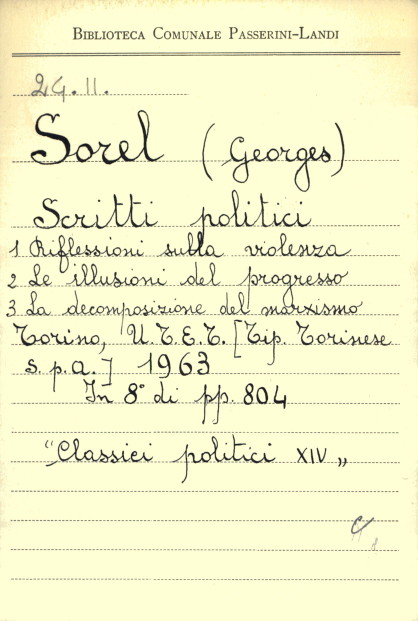 BIBLIOTECA COMUNALE PASSERINI-LANDI
2G.11.
Sorel (Georges)
Scritti politici
1 Riflessioni sulla violenza
2 Le illusioni del progresso
3 La decomposizione del marxismo
Torino, U.T.E.T. [Tip. Torinese
s.p.a.] 1963
In 8° di pp. 804
"Classici politici XIV„